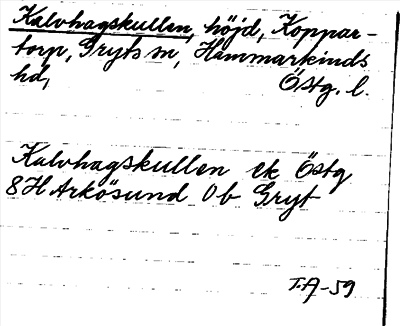 Kalvhagskullen, höjd, Koppar-
torp, Gryts sn, Hammarkinds
hd, Östg. l.
Kalvhagskullen ek Östg
8H Arkösund 0b Gryt
T.A-59